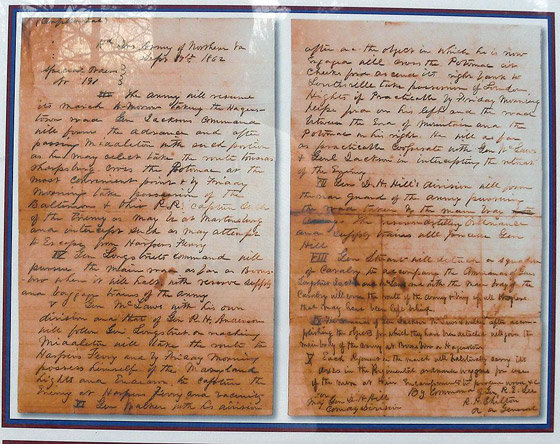 (Confidential)
Hd Qrs Army of Northern Va
Sept 9th 1862
Special Orders
No 191
III The Army will resume
its march to-morrow taking the Hagers-
town road. Gen Jackson's Command
will form the advance and after
passing Middleton with such portion
as he may select take the route towards
Sharpsburg cross the Potomac at the
most convenient point & by Friday
Morning take possession of the
Baltimore & Ohio R.R. capture such
of the Enemy as may be at Martinsburg
and intercept such as may attempt
to Escape from Harpers Ferry
IV Gen Longstreet's command will
pursue the main road as far as Boons-
boro where it will halt with reserve supply
and baggage trains of the army
V Gen McLaws with his own
division and that of Gen R. H. Anderson
will follow Gen Longstreet on reaching
Middleton will take the route to
Harpers Ferry and by Friday Morning
possess himself of the Maryland
hights and Endeavor to capture the
Enemy at Harpers Ferry and vicinity
VI Gen Walker with his division
after the object in which he is now
Engaged will cross the Potomac at
Cheeks ford ascend its right bank to
Lovettsville take possession of Loudon
Hights if Practicable by Friday Morning
Keyes ford on his left and the road
between the End of Mountain and the
Potomac on his right. He will as far
as practicable Cooperate with Gen McLaws
& Genl Jackson in intercepting the retreat
of the Enemy
VII Gen D. H. Hill's division will form
the rear guard of the army pursuing
the road taken by the main body
The reserve artillery Ordnance
and supply trains will precede Gen
Hill
VIII Gen Stuart will detach a squadron
of Cavalry to accompany the Commands of Gen
Longstreet Jackson and McLaws and with the main body of the
Cavalry will cover the route of the army & bring up all stragglers
that may have been left behind
IX The commands of Gen Jackson McLaws & Walker after accom-
plishing the objects for which they have been detached will join the
main body of the army at Boonsboro or Hagerstown
X Each Regiment on the march will habitually carry its
axes in the Regimental ordnance wagons for use
of the men at their Encampments to procure wood &c
By Command of Gen R. E. Lee
R. H. Chilton
A. A. General
For
Maj Gen D. H. Hill
Comdg Division